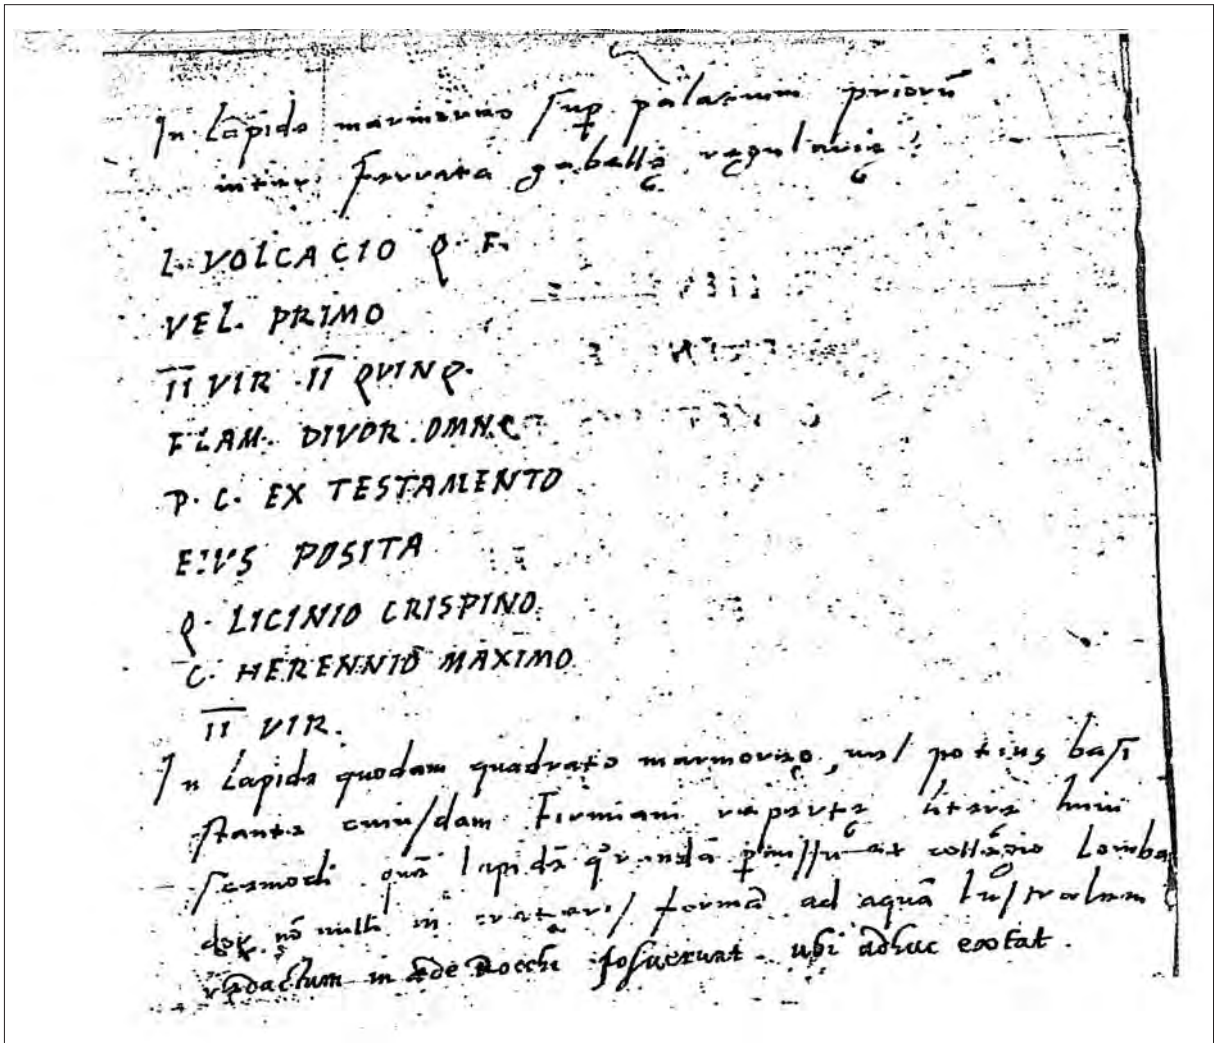 In Lapide marmoreo sup palatium priorũ
inter ferrata gabellę regularię
L. VOLCACIO Q. F.
VEL. PRIMO
II VIR II QVINQ.
FLAM. DIVOR. OMN.
P. C. EX TESTAMENTO
EIVS POSITA
Q. LICINIO CRISPINO
C. HERENNIO MAXIMO
II VIR.
In Lapide quodam quadrato marmoreo, vel potius basi
stante cuiusdam Firmiani reperte litere huiu
scemodi quẽ lapidẽ collegio Lomba
nõ nulli in crateris formã ad aquã lustralem
redactum in ęde Rocchi posuerunt ubi adhuc exstat.